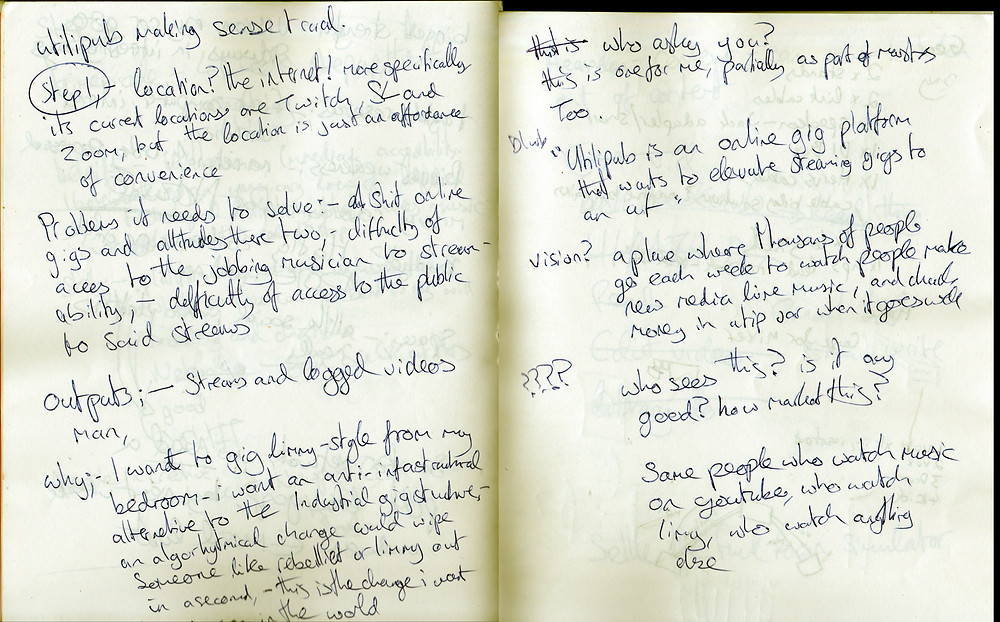 utilipub making sense trad.
Step 1,- location? the internet! more specifically
its current locations are Twitch, and
Zoom, but the location is just an affordance
of convenience
Problems it needs to solve:- shit online
gigs and attitudes there two,- difficulty of
access to the jobbing musician to stream-
ability,- difficulty of access to the public
to said streams
Outputs:- Streams and logged videos
man,
why;- I want to gig limmy-style from my
bedroom - i want an anti-infastructural
alternative to the Industrial gig structures-
an algorhytmical change could wipe
someone like rebelliet or limmy out
in a second,- this is the change i want
in the world
this is who asks you?
this is one for me, partially as part of
Too.
Blurb "Utilipub is an online gig platform
that wants to elevate streaming gigs to
an art"
vision? a place where thousands of people
go each week to watch people make
new media live music, and chuck
money in a tip jar when it goes well
???? who sees this? is it any
good? how market this?
Same people who watch music
on youtube, who watch
limmy, who watch anything
else